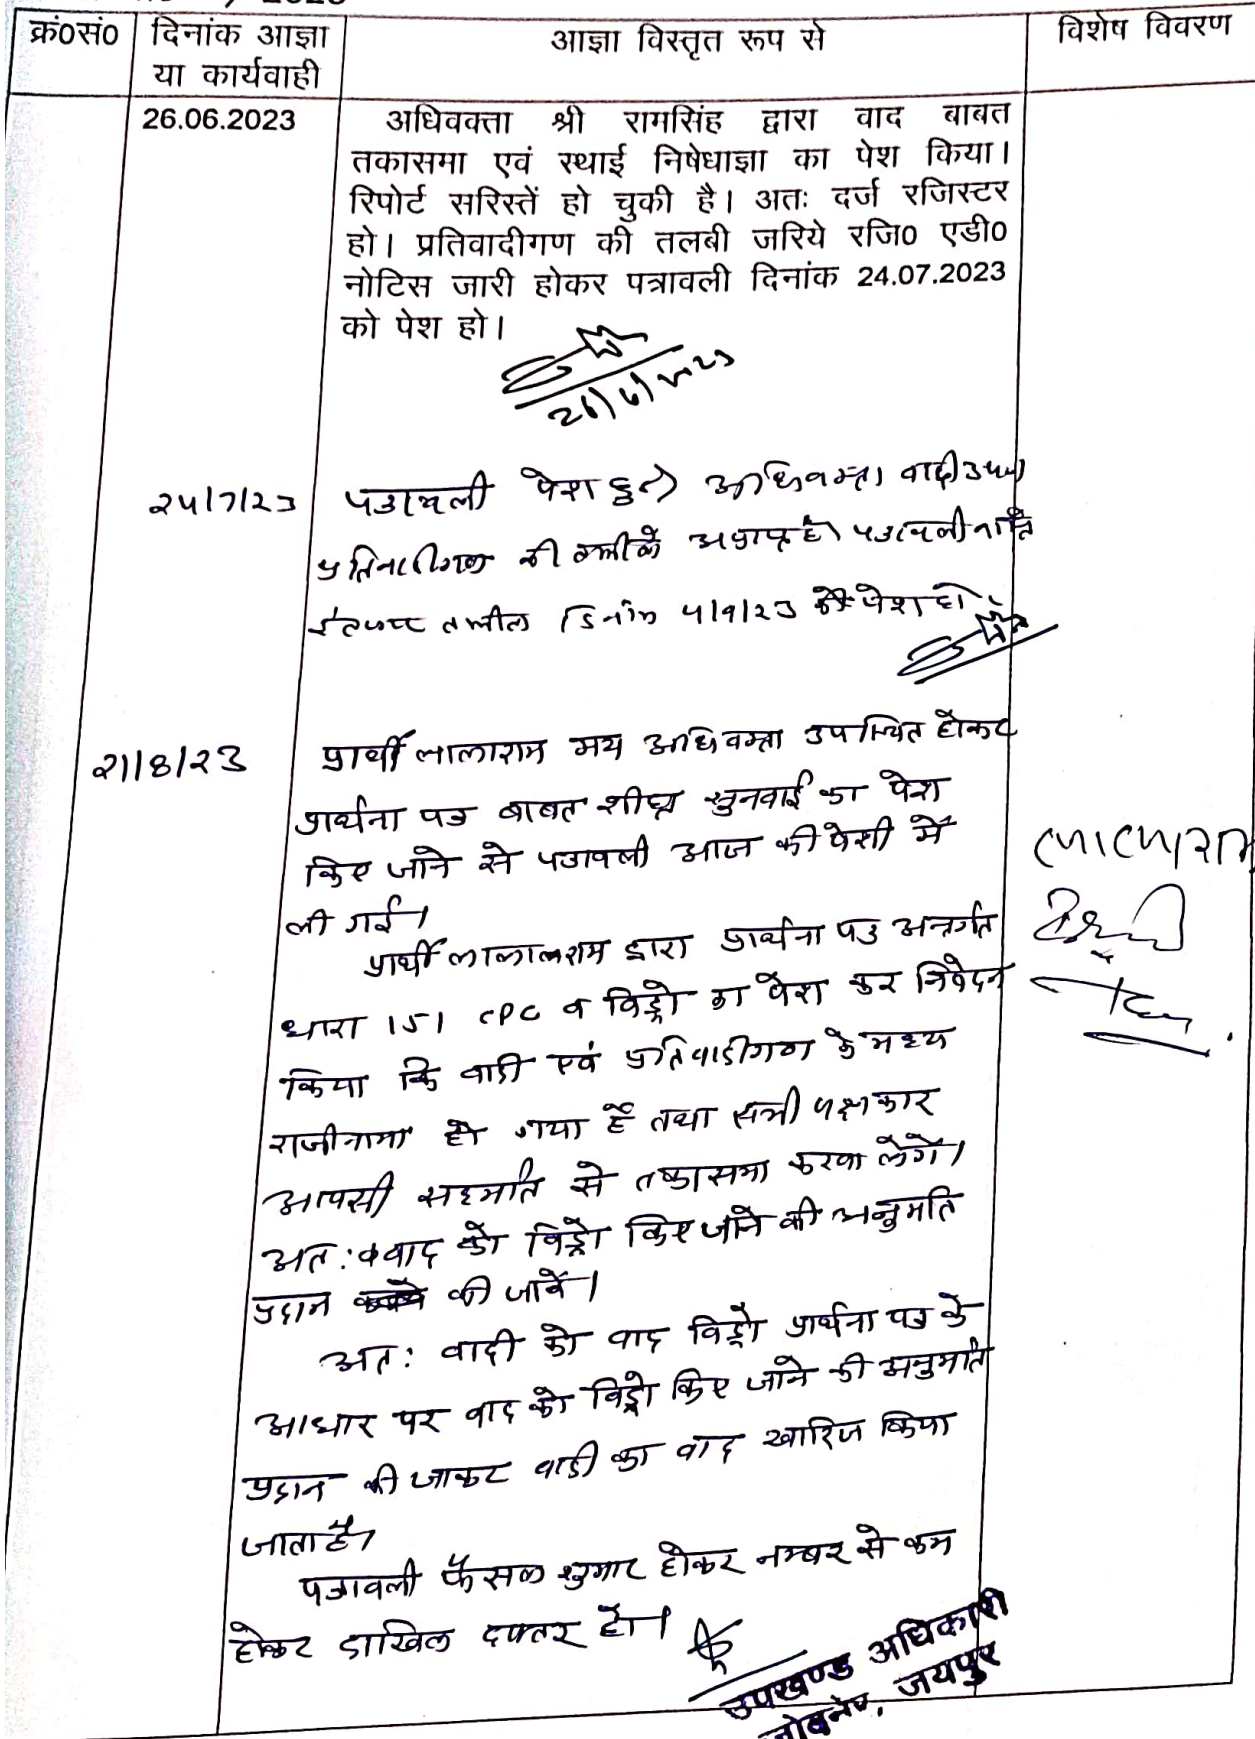 क्रं0सं0 दिनांक आज्ञा या कार्यवाही आज्ञा विस्तृत रूप से विशेष विवरण
26.06.2023 अधिवक्ता श्री रामसिंह द्वारा वाद बाबत
तकासमा एवं स्थाई निषेधाज्ञा का पेश किया।
रिपोर्ट सरिस्तें हो चुकी है। अतः दर्ज रजिस्टर
हो। प्रतिवादीगण की तलबी जरिये रजि0 एडी0
नोटिस जारी होकर पत्रावली दिनांक 24.07.2023
को पेश हो।
26/6/2023
24/7/23 पत्रावली पेश हुई। अधिवक्ता वादी उप०
प्रतिवादीगण की तामील अप्राप्त है। पत्रावली वास्ते
इंतजार तामील दिनांक 4/9/23 को पेश हो।
21/8/23 प्रार्थी लालाराम मय अधिवक्ता उपस्थित होकर
प्रार्थना पत्र बाबत शीघ्र सुनवाई का पेश
किए जाने से पत्रावली आज की पेशी में
ली गई।
लालाराम
प्रार्थी लालालराम द्वारा प्रार्थना पत्र अन्तर्गत
धारा 151 CPC व विड्रो का पेश कर निवेदन
किया कि वादी एवं प्रतिवादीगण के मध्य
राजीनामा हो गया है तथा सभी पक्षकार
आपसी सहमति से तकासमा करवा लेंगे।
अतः वाद को विड्रो किए जाने की अनुमति
प्रदान की जावें।
अतः वादी को वाद विड्रो प्रार्थना पत्र के
आधार पर वाद को विड्रो किए जाने की अनुमति
प्रदान की जाकर वादी का वाद खारिज किया
जाता है।
पत्रावली फैसल शुमार होकर नम्बर से कम
होकर दाखिल दफ्तर हो।
उपखण्ड अधिकारी
जोबनेर, जयपुर